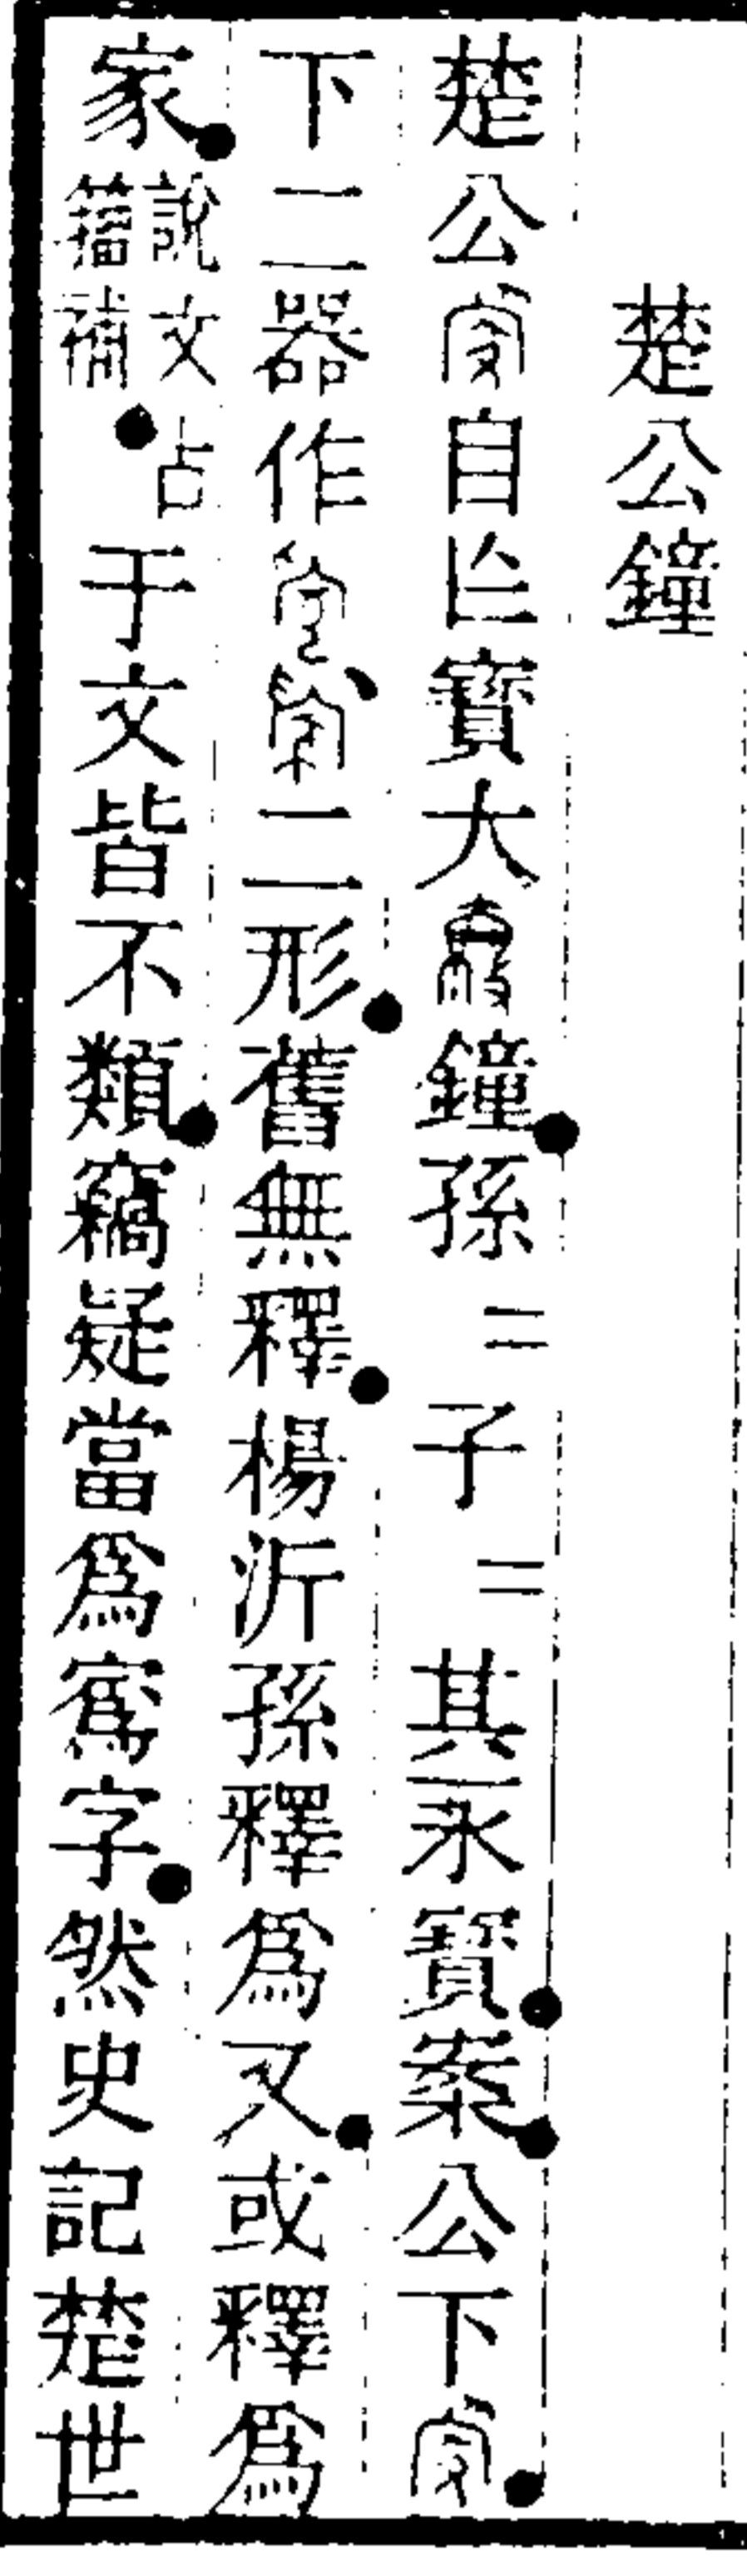 楚公鐘
楚公自乍寶大鐘孫二子二其永寶案公下
下二器作二形舊無釋楊沂孫釋爲又或釋爲
家說文古籀補于文皆不類竊疑當爲寫字然史記楚世